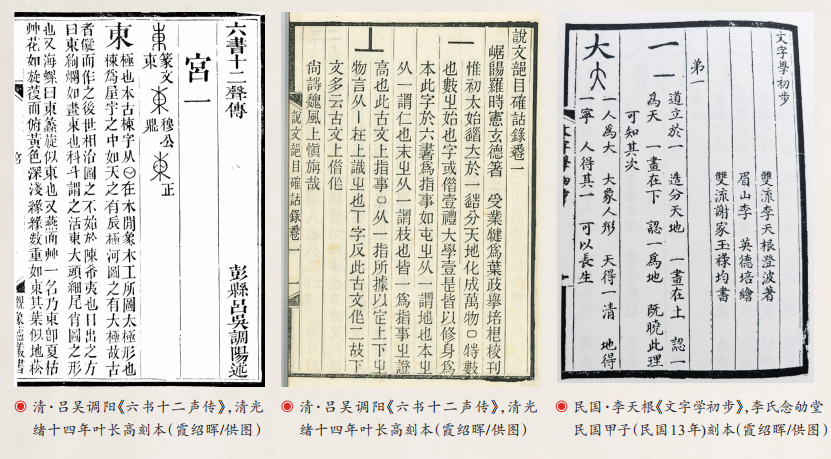 六書十二聲傳
彭縣呂吳調陽述
宮一
東 篆文東 穆公鼎 正
極也本古棟字从日在木閒象木工所圖太極形也
棟為屋宇之中如天之有辰極河圖之有大極故古
者從而作之後世相治圖之不始於陳希夷也日出之方
曰東絢爛如畫東也科斗謂之活東大頭細尾肖圖之形
也又海螺曰東蠡旋似東也又燕面艸一名乃東卽夏枯
艸花如旋葍而俯黃色深淺綠綠数重如東其葉似地菘
說文䛡目確詁錄卷一
崌腸羅時憲玄德著 受業犍為葉政舉培根校刊
一 惟初太始道大於一分天地化成萬物〇特數
也數㞢始也字或借壹禮大學壹是皆以修身為
本此字於六書為指事如屯㞢从一謂地也本㞢
从一謂仁也末㞢从一謂枝也皆一為指事㞢證
丄 高也此古文上指事〇从一指所據以定上下㞢
物言从丨在上識㞢也丅字反此古文作二故下
文多云古文上作
尚詩魏風上慎旃哉
說文䛡目確詁錄卷一
文字學初步
雙流李天根澄波著
眉山李 英德培繪
雙流謝家玉祿均書
第一
一 道立於一 造分天地 一畫在上 認一
為天 一畫在下 認一為地 既曉此理
可知其次
大 一人為大 大象人形 天得一清 地得
一寧 人得其一 可以長生
文字學初步
清·吕吴调阳《六书十二声传》,清光
绪十四年叶长高刻本(霞绍晖/供图)
清·吕吴调阳《六书十二声传》,清光
绪十四年叶长高刻本(霞绍晖/供图)
民国·李天根《文字学初步》,李氏念劬堂
民国甲子(民国13年)刻本(霞绍晖/供图)